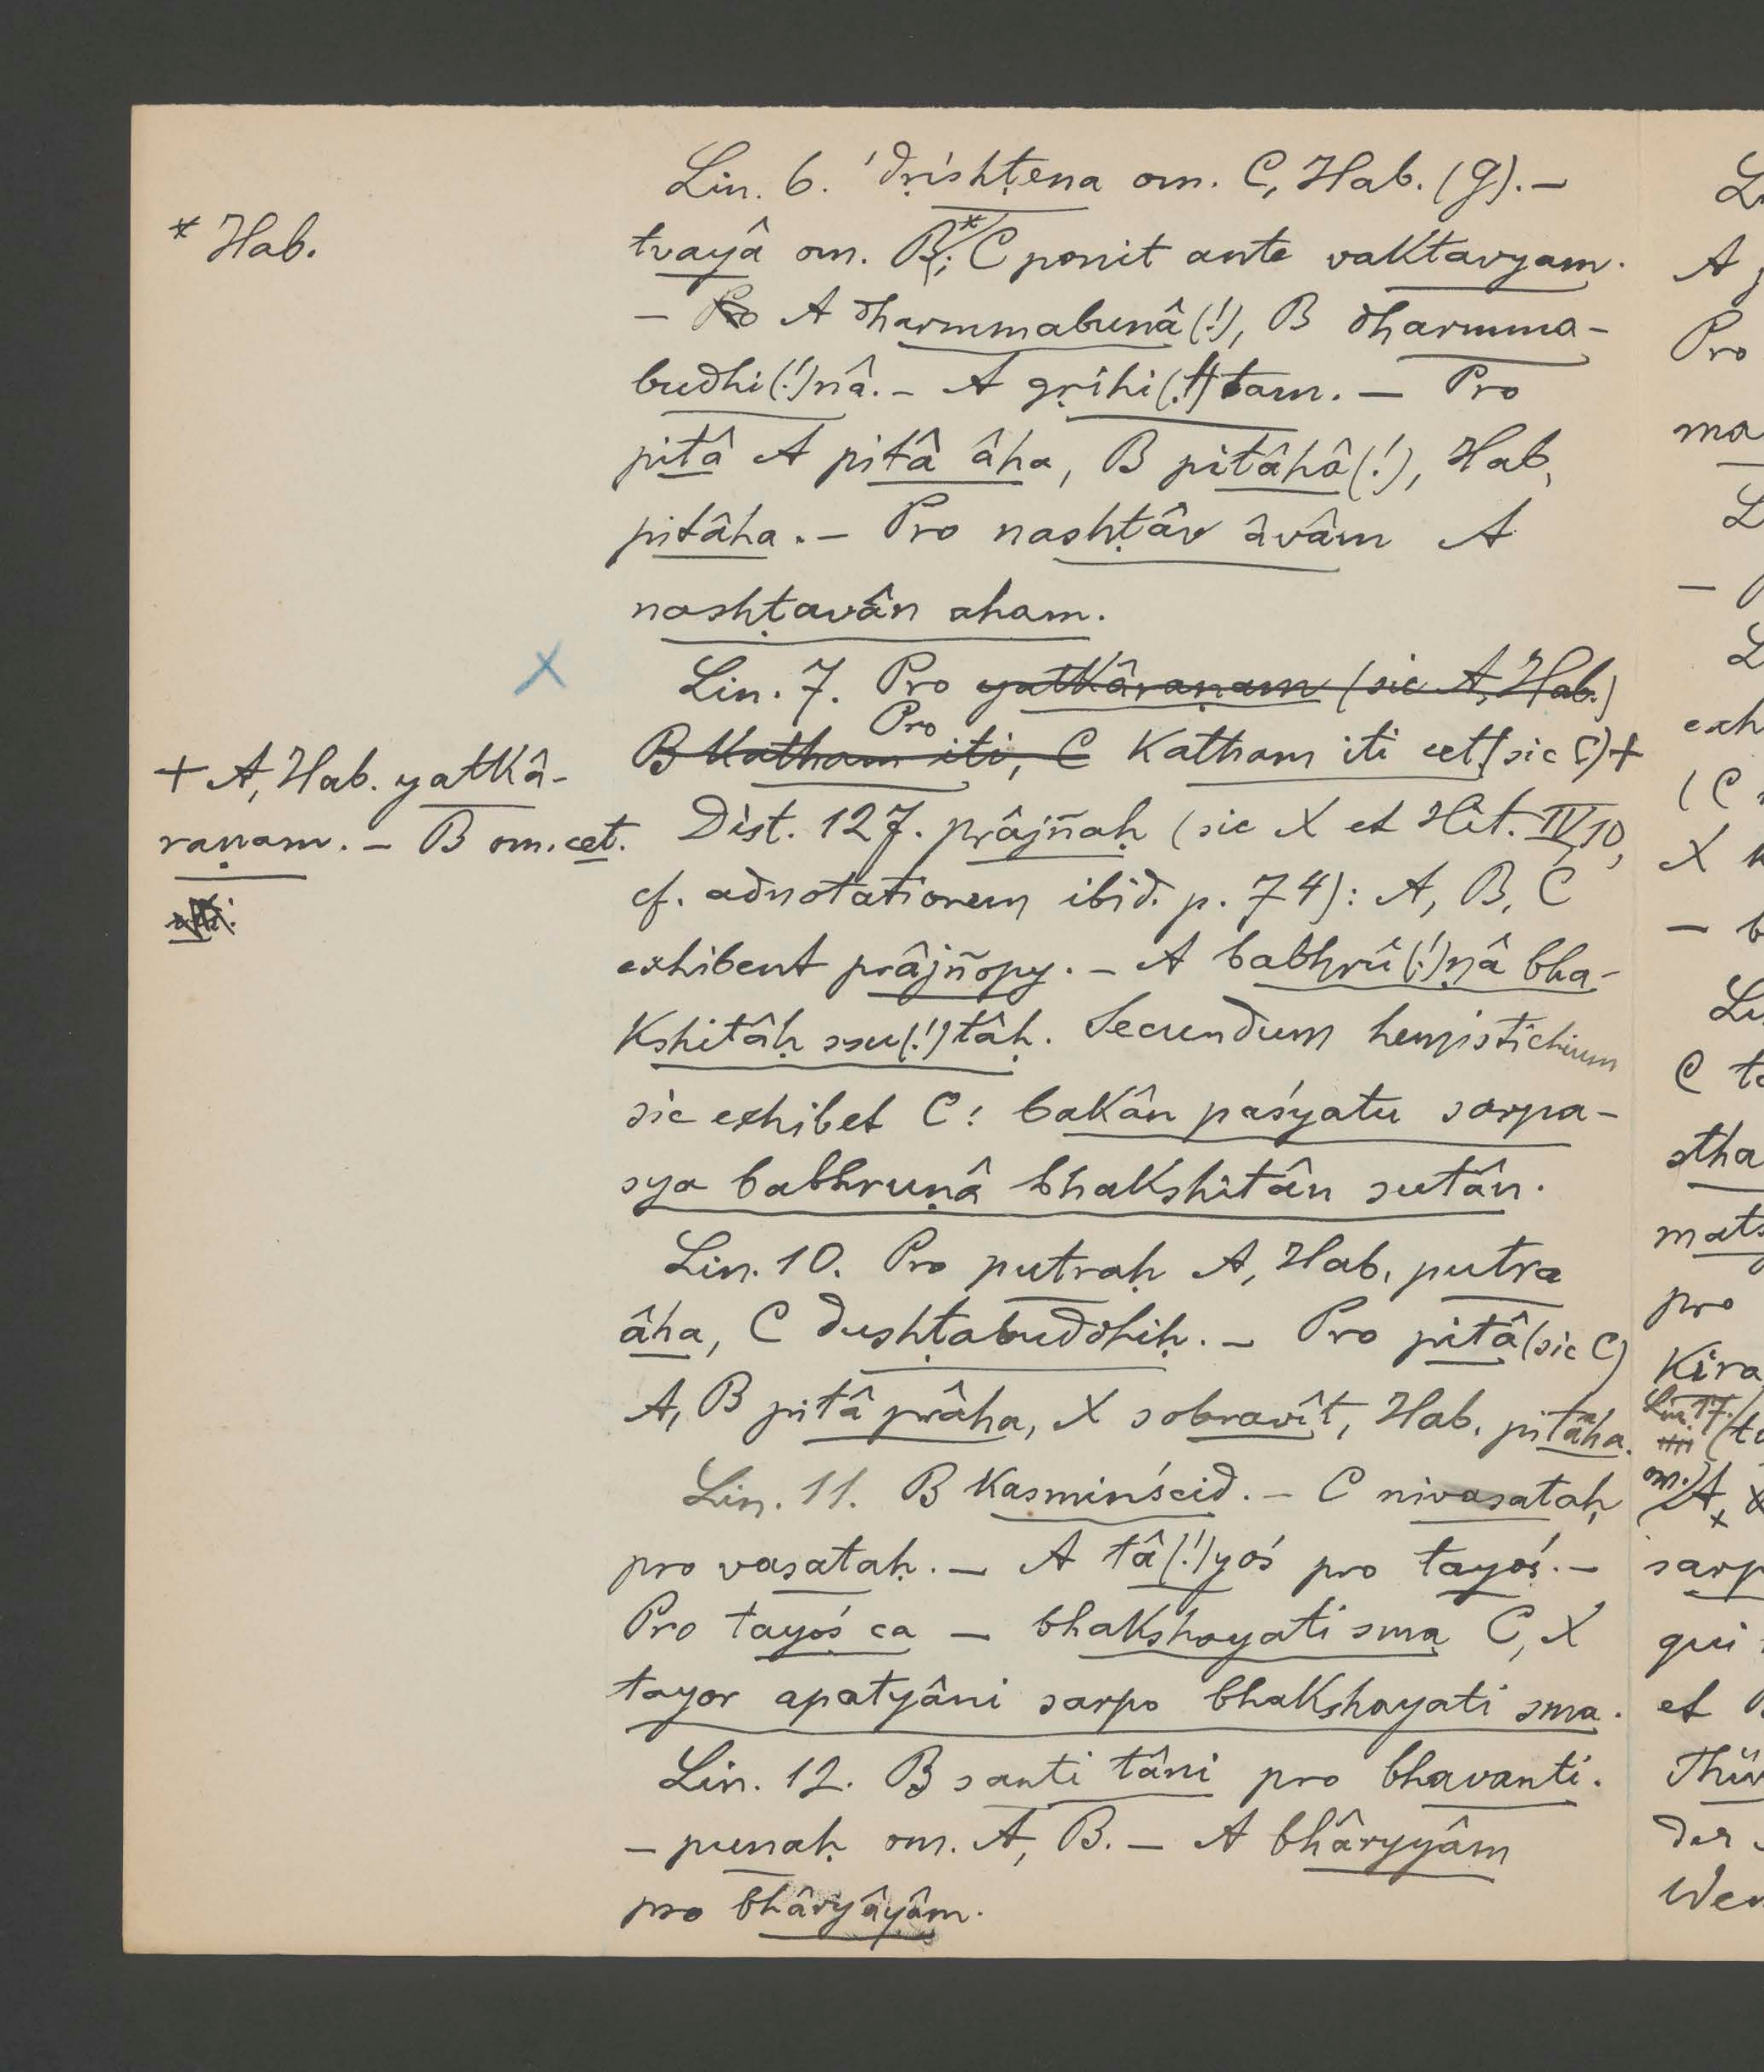 Lin. 6. 'dṛishṭena om. C, Hab. (g). —
* Hab.
tvayâ om. B*; C ponit ante vaktavyam.
— A dharmmabunâ(!), B dharmma-
budhi(!)nâ. — A gṛihi(!)tam. — Pro
pitâ A pitâ âha, B pitâhâ(!), Hab.
pitâha. — Pro nashṭâv âvâm A
nashṭavân aham.
X
Lin. 7. Pro yatkâraṇam (sic A, Hab.)
Pro
B katham iti, C katham iti cet (sic C) +
+ A, Hab. yatkâ-
raṇam. — B om. cet.
Dist. 127. prâjñaḥ (sic X et Hit. IV, 10,
cf. adnotationem ibid. p. 74): A, B, C
exhibent prâjñopy. — A babhrû(!)ṇâ bha-
kshitâḥ ssu(!)tâḥ. Secundum hemistichium
sic exhibet C: bakân paśyatu sarpa-
sya babhruṇâ bhakshitân sutân.
Lin. 10. Pro putraḥ A, Hab. putra
âha, C dushṭabuddhiḥ. — Pro pitâ (sic C)
A, B pitâ prâha, X sobravît, Hab. pitâha.
Lin. 11. B kasminścid. — C nivasataḥ
pro vasataḥ. — A tâ(!)yoś pro tayoś. —
Pro tayoś ca — bhakshayati sma C, X
tayor apatyâni sarpo bhakshayati sma.
Lin. 12. B santi tâni pro bhavanti.
— punaḥ om. A, B. — A bhâryyâm
pro bhâryâyâm.
A
Pro
ma
exh
(C
X
C
stha
mats
pro
Kira
Lin. 17.
om.) A,
sarp
qui
et
der